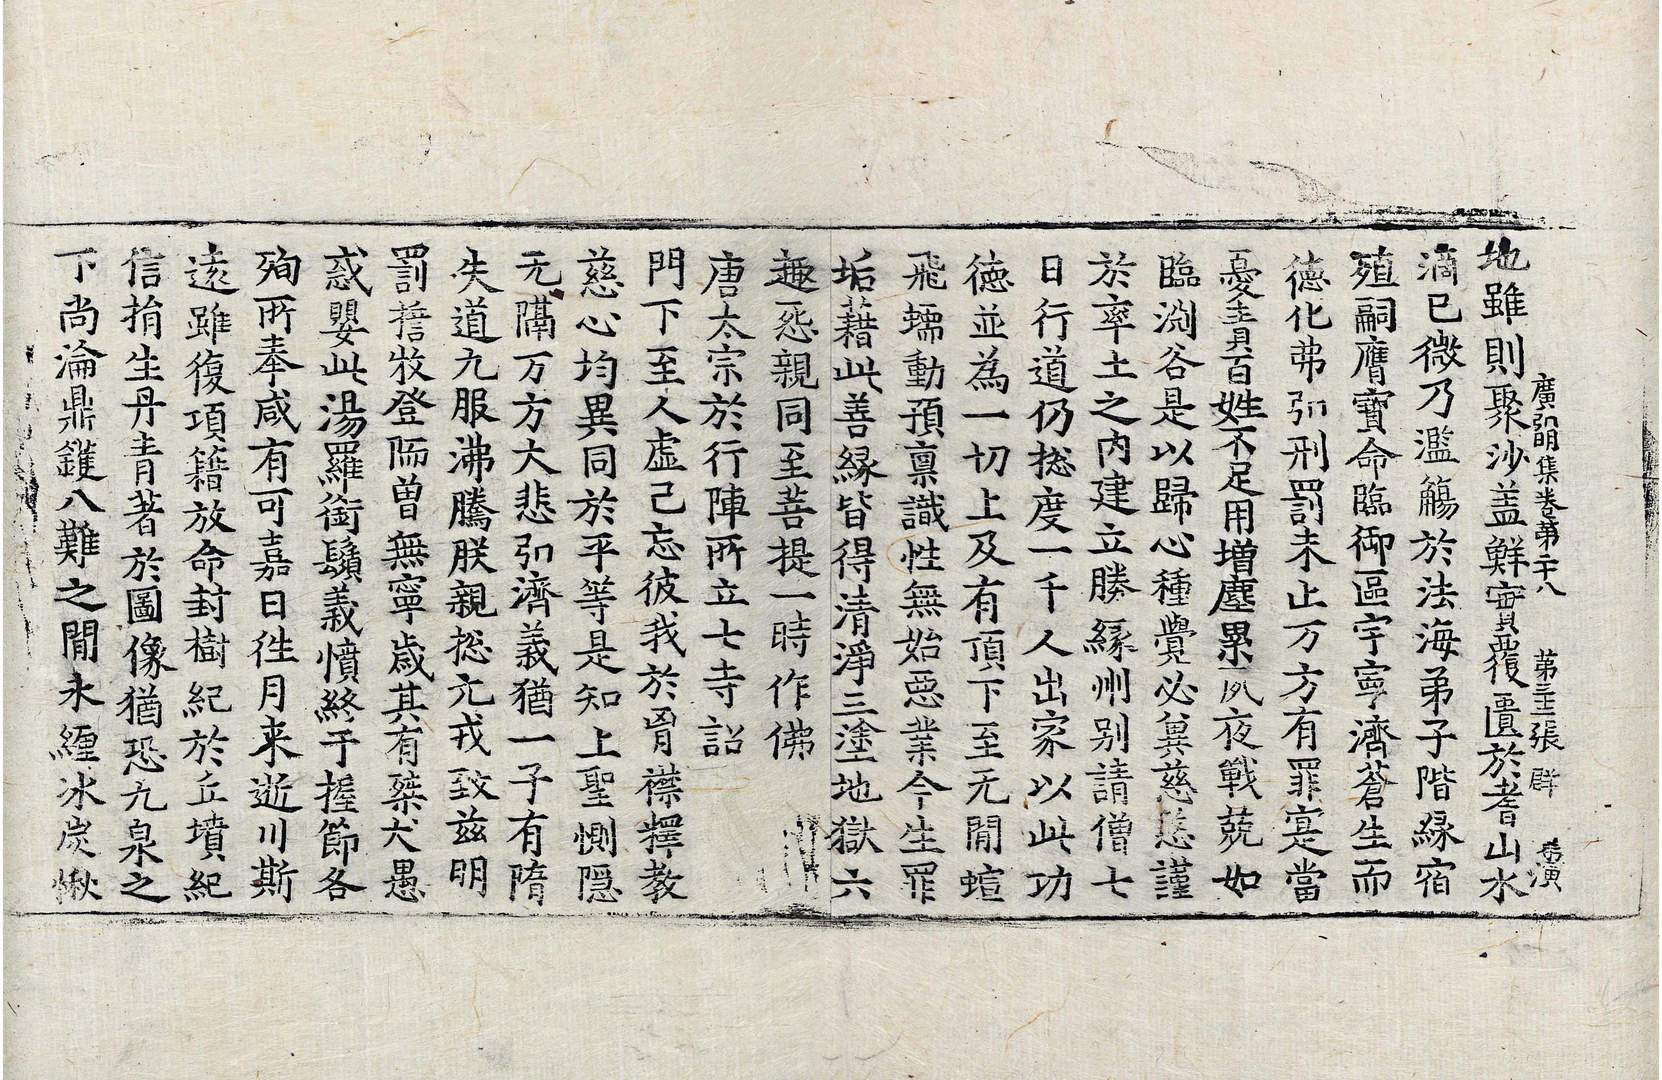 廣弘明集卷第二十八 第三十三張 群
地雖則聚沙蓋鮮實覆匱於耆山水
滴已微乃濫觴於法海弟子階緣宿
殖嗣膺寶命臨御區宇寧濟蒼生而
德化弗弘刑罰未止万方有罪寔當
憂責百姓不足用增塵累夙夜戰兢如
臨渊谷是以歸心種覺必冀慈愍謹
於率土之內建立勝緣州別請僧七
日行道仍捴度一千人出家以此功
德並為一切上及有頂下至无閒蝖
飛蠕動預稟識性無始惡業今生罪
垢藉此善緣皆得清淨三塗地獄六
趣怨親同至菩提一時作佛
唐太宗於行陣所立七寺詔
門下至人虛己忘彼我於胷襟釋教
慈心均異同於平等是知上聖惻隠
无隔万方大悲弘濟義猶一子有隋
失道九服沸騰朕親捴元戎致茲明
罰誓牧登陑曾無寧歲其有桀犬愚
惑嬰此湯羅銜鬚義憤終于握節各
殉所奉咸有可嘉日徃月来逝川斯
遠雖復項籍放命封樹紀於丘墳紀
信捐生丹青著於圖像猶恐九泉之
下尚淪鼎鑊八難之閒永纏冰炭愀